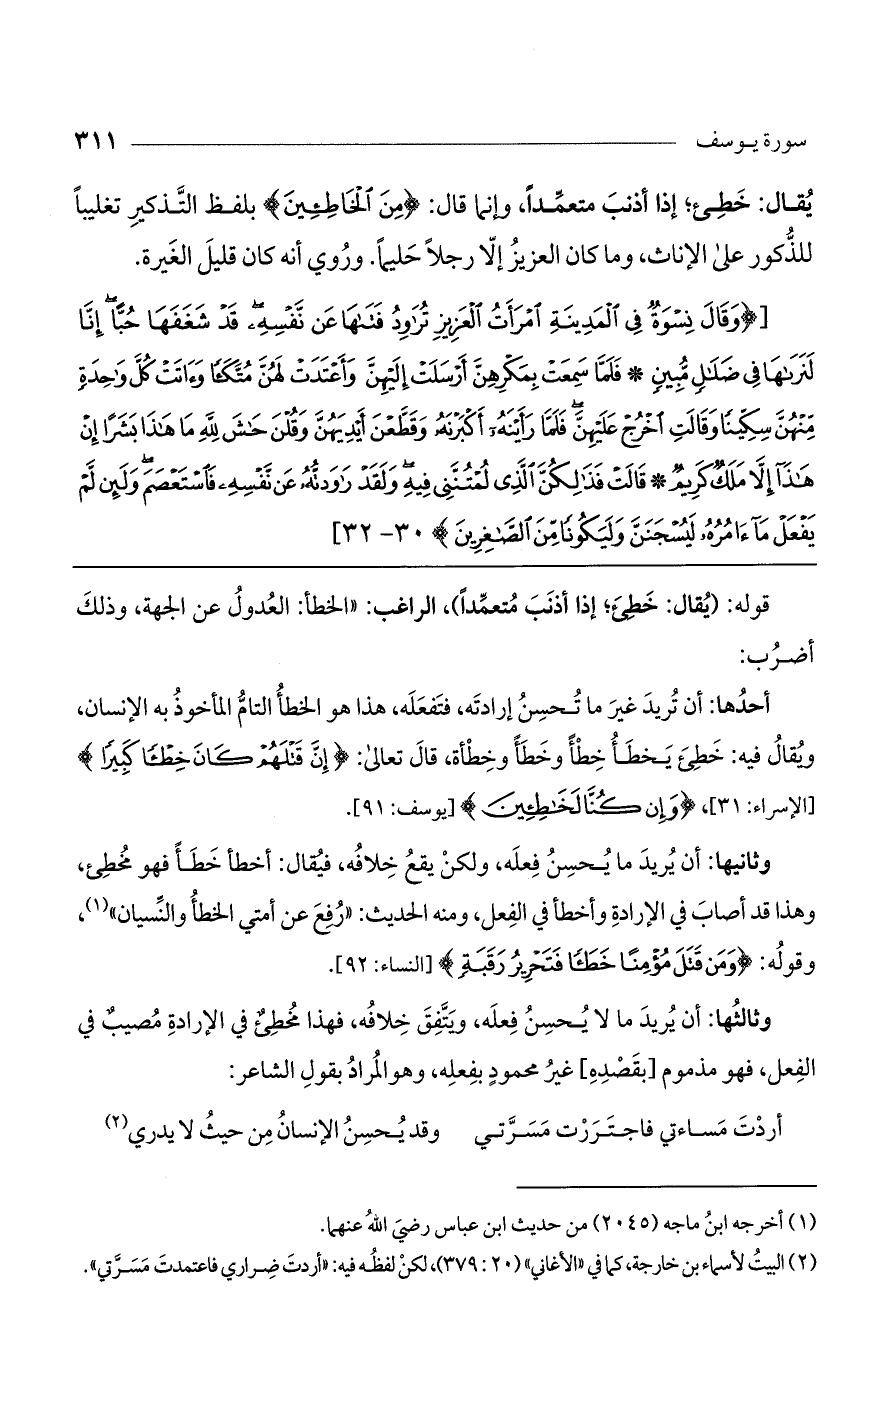 سورة يوسف ٣١١
يُقال: خَطِئ؛ إذا أذنبَ متعمِّداً، وإنما قال: ﴿مِنَ ٱلْخَاطِـِٔينَ﴾ بلفظ التَّذكيرِ تغليباً
للذُّكور على الإناث، وما كان العزيزُ إلّا رجلاً حَليماً. ورُوي أنه كان قليلَ الغَيرة.
[﴿وَقَالَ نِسْوَةٌ فِى ٱلْمَدِينَةِ ٱمْرَأَتُ ٱلْعَزِيزِ تُرَٰوِدُ فَتَىٰهَا عَن نَّفْسِهِۦ ۖ قَدْ شَغَفَهَا حُبًّا ۖ إِنَّا
لَنَرَىٰهَا فِى ضَلَٰلٍ مُّبِينٍ * فَلَمَّا سَمِعَتْ بِمَكْرِهِنَّ أَرْسَلَتْ إِلَيْهِنَّ وَأَعْتَدَتْ لَهُنَّ مُتَّكَـًٔا وَءَاتَتْ كُلَّ وَٰحِدَةٍ
مِّنْهُنَّ سِكِّينًا وَقَالَتِ ٱخْرُجْ عَلَيْهِنَّ ۖ فَلَمَّا رَأَيْنَهُۥٓ أَكْبَرْنَهُۥ وَقَطَّعْنَ أَيْدِيَهُنَّ وَقُلْنَ حَٰشَ لِلَّهِ مَا هَٰذَا بَشَرًا إِنْ
هَٰذَآ إِلَّا مَلَكٌ كَرِيمٌ * قَالَتْ فَذَٰلِكُنَّ ٱلَّذِى لُمْتُنَّنِى فِيهِ ۖ وَلَقَدْ رَٰوَدتُّهُۥ عَن نَّفْسِهِۦ فَٱسْتَعْصَمَ ۖ وَلَئِن لَّمْ
يَفْعَلْ مَآ ءَامُرُهُۥ لَيُسْجَنَنَّ وَلَيَكُونًا مِّنَ ٱلصَّٰغِرِينَ﴾ ٣٠- ٣٢]
قوله: (يُقال: خَطِئَ؛ إذا أذنَبَ مُتعمِّداً)، الراغب: «الخطأ: العُدولُ عن الجهة، وذلكَ
أضرُب:
أحدُها: أن تُريدَ غيرَ ما تُحسِنُ إرادتَه، فتَفعَلَه، هذا هو الخطأُ التامُّ المأخوذُ به الإنسان،
ويُقالُ فيه: خَطِئَ يَخطَأُ خِطْأً وخَطَأً وخِطْأة، قالَ تعالىٰ: ﴿إِنَّ قَتْلَهُمْ كَانَ خِطْـًٔا كَبِيرًا﴾
[الإسراء: ٣١]، ﴿وَإِن كُنَّا لَخَٰطِـِٔينَ﴾ [يوسف: ٩١].
وثانيها: أن يُريدَ ما يُحسِنُ فِعلَه، ولكنْ يقعُ خِلافُه، فيُقال: أخطأ خَطَأً فهو مُخطِئ،
وهذا قد أصابَ في الإرادةِ وأخطأ في الفِعل، ومنه الحديث: «رُفِعَ عن أمتي الخطأُ والنِّسيان»(١)،
وقولُه: ﴿وَمَن قَتَلَ مُؤْمِنًا خَطَـًٔا فَتَحْرِيرُ رَقَبَةٍ﴾ [النساء: ٩٢].
وثالثُها: أن يُريدَ ما لا يُحسِنُ فِعلَه، ويَتَّفِقَ خِلافُه، فهذا مُخطِئٌ في الإرادةِ مُصيبٌ في
الفِعل، فهو مذموم [بقَصْدِهِ] غيرُ محمودٍ بفِعلِه، وهو المُرادُ بقولِ الشاعر:
أردْتَ مَساءتي فاجتَرَرْت مَسَرَّتي وقد يُحسِنُ الإنسانُ مِن حيثُ لا يدري(٢)
(١) أخرجه ابنُ ماجه (٢٠٤٥) من حديث ابن عباس رضيَ اللهُ عنهما.
(٢) البيتُ لأسماء بن خارجة، كما في «الأغاني» (٢٠: ٣٧٩)، لكنْ لفظُه فيه: «أردتَ ضِراري فاعتمدتَ مَسَرَّتي».